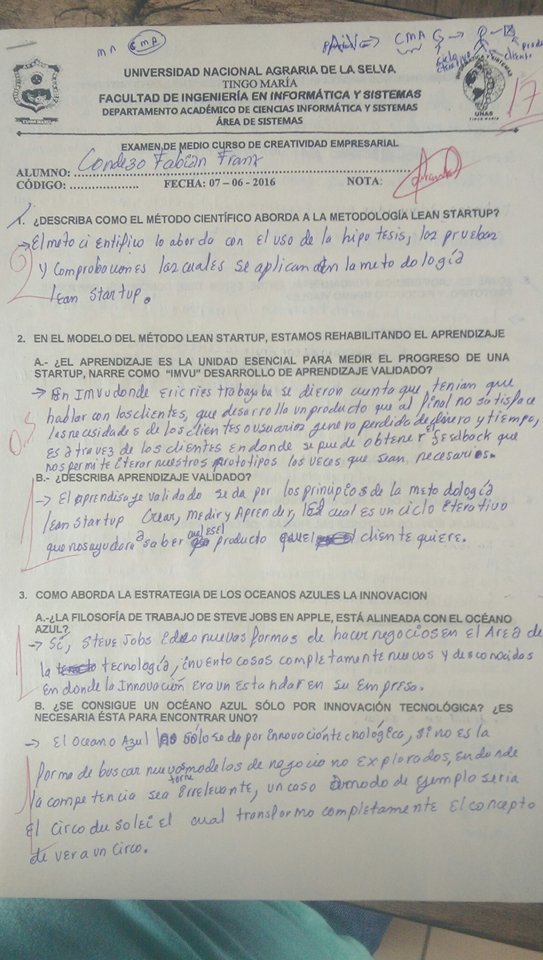 mn CMA
CMA
cliente
UNIVERSIDAD NACIONAL AGRARIA DE LA SELVA
TINGO MARÍA
FACULTAD DE INGENIERÍA EN INFORMÁTICA Y SISTEMAS
DEPARTAMENTO ACADÉMICO DE CIENCIAS INFORMÁTICA Y SISTEMAS
ÁREA DE SISTEMAS
UNAS
17
EXAMEN DE MEDIO CURSO DE CREATIVIDAD EMPRESARIAL
ALUMNO: Condezo Fabian Franz
CÓDIGO: ........................ FECHA: 07 – 06 - 2016 NOTA:
1. ¿DESCRIBA COMO EL MÉTODO CIENTÍFICO ABORDA A LA METODOLOGÍA LEAN STARTUP?
→ El metodo cientifico lo aborda con el uso de la hipotesis, las pruebas
2
y comprobaciones las cuales se aplican en la metodología
lean startup.
2. EN EL MODELO DEL MÉTODO LEAN STARTUP, ESTAMOS REHABILITANDO EL APRENDIZAJE
A.- ¿EL APRENDIZAJE ES LA UNIDAD ESENCIAL PARA MEDIR EL PROGRESO DE UNA
STARTUP, NARRE COMO "IMVU" DESARROLLO DE APRENDIZAJE VALIDADO?
→ En IMVU donde Eric ries trabajaba se dieron cuenta que tenian que
0.5
hablar con los clientes, que desarrollo un producto que al final no satisface
las necesidades de los clientes o usuarios genero perdida de dinero y tiempo,
es a travez de los clientes en donde se puede obtener el feedback que
nos permite iterar nuestros prototipos las veces que sean necesarios.
B.- ¿DESCRIBA APRENDIZAJE VALIDADO?
1
→ El aprendisaje validado se da por los principios de la metodología
lean startup Crear, Medir y Aprender, el cual es un ciclo iterativo
que nos ayudara a saber cual es el producto que el cliente quiere.
3. COMO ABORDA LA ESTRATEGIA DE LOS OCEANOS AZULES LA INNOVACION
A.-¿LA FILOSOFÍA DE TRABAJO DE STEVE JOBS EN APPLE, ESTÁ ALINEADA CON EL OCÉANO
AZUL?
1
→ Si, Steve Jobs nuevas formas de hacer negocios en el Area de
la tecnología, invento cosas completamente nuevas y desconocidas
en donde la Innovación era un estandar en su Empresa.
B. ¿SE CONSIGUE UN OCÉANO AZUL SÓLO POR INNOVACIÓN TECNOLÓGICA? ¿ES
NECESARIA ÉSTA PARA ENCONTRAR UNO?
→ El Oceano Azul no sólo se da por innovación tecnológica, si no es la
1
forma de buscar nuevos modelos de negocio no explorados, en donde
la competencia se torne irrelevante, un caso a modo de ejemplo seria
El Circo du solei el cual transformo completamente El concepto
de ver a un Circo.